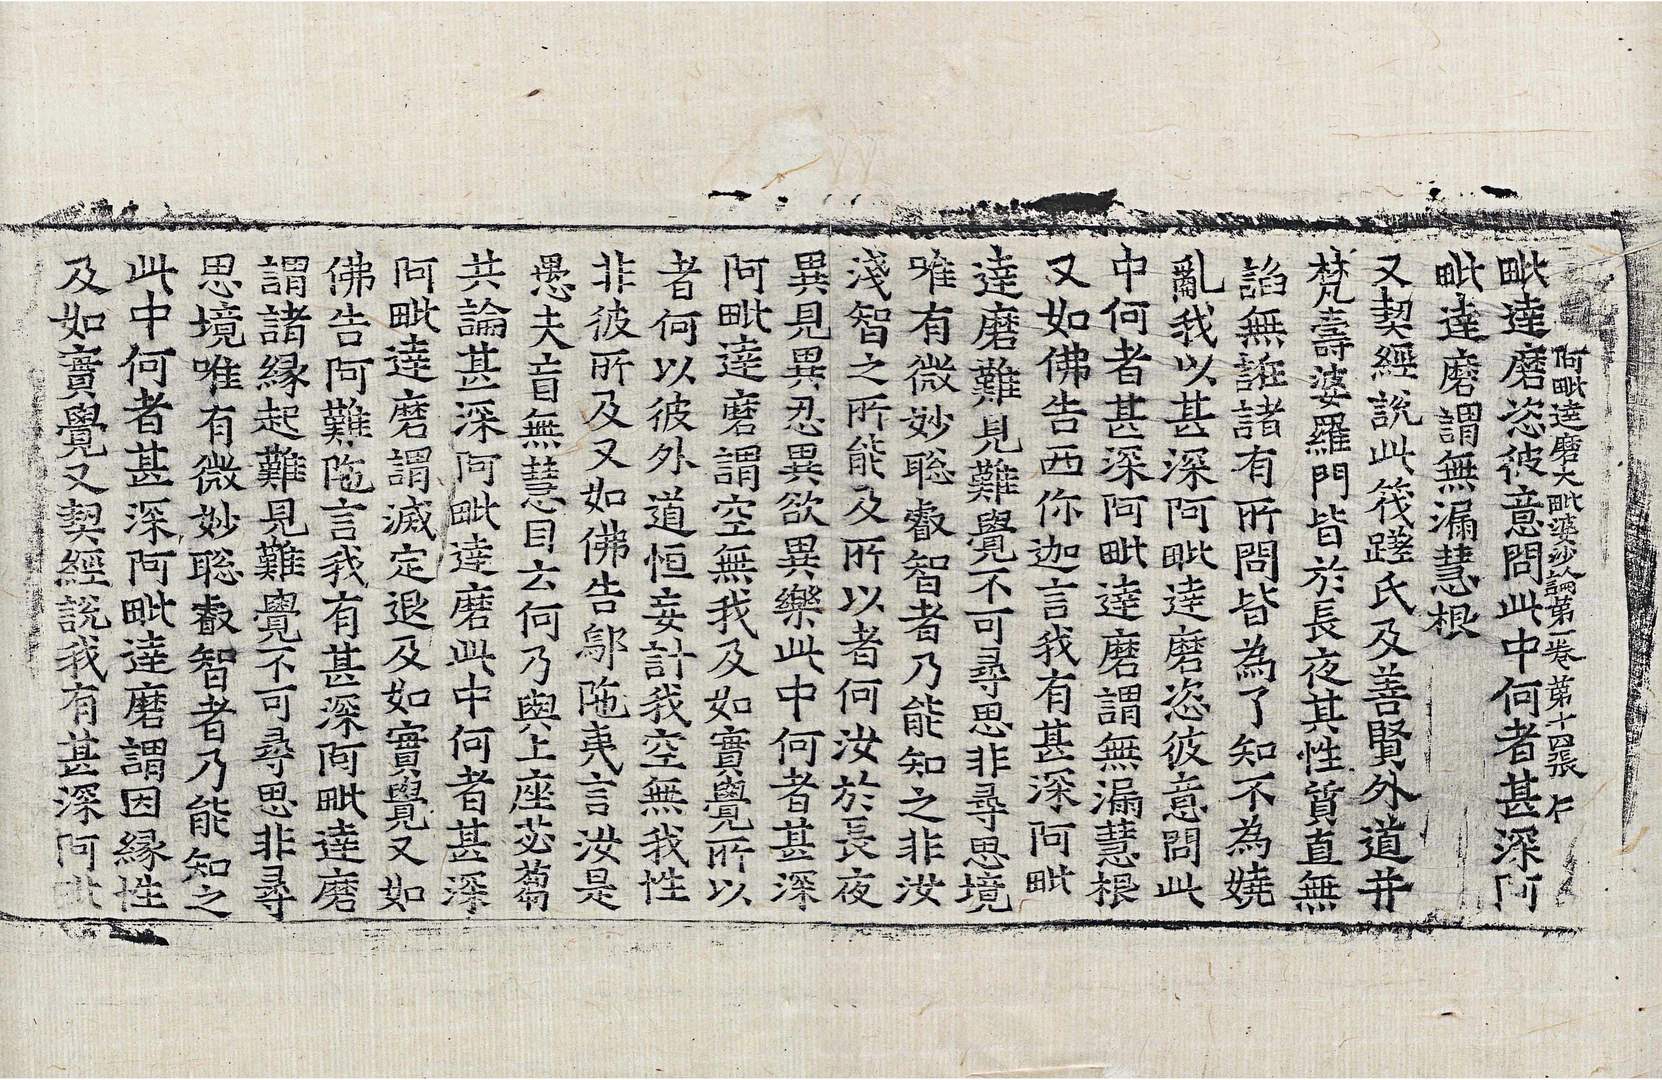 阿毗達磨大毗婆沙論第一卷 第十四張 仁
毗達磨恣彼意問此中何者甚深阿
毗達磨謂無漏慧根
又契經說此筏蹉氏及善賢外道并
梵壽婆羅門皆於長夜其性質直無
諂無誑諸有所問皆為了知不為嬈
亂我以甚深阿毗達磨恣彼意問此
中何者甚深阿毗達磨謂無漏慧根
又如佛告西你迦言我有甚深阿毗
達磨難見難覺不可尋思非尋思境
唯有微妙聡叡智者乃能知之非汝
淺智之所能及所以者何汝於長夜
異見異忍異欲異樂此中何者甚深
阿毗達磨謂空無我及如實覺所以
者何以彼外道恒妄計我空無我性
非彼所及又如佛告鄔陁夷言汝是
愚夫盲無慧目云何乃與上座苾蒭
共論甚深阿毗達磨此中何者甚深
阿毗達磨謂滅定退及如實覺又如
佛告阿難陁言我有甚深阿毗達磨
謂諸緣起難見難覺不可尋思非尋
思境唯有微妙聡叡智者乃能知之
此中何者甚深阿毗達磨謂因緣性
及如實覺又契經說我有甚深阿毗